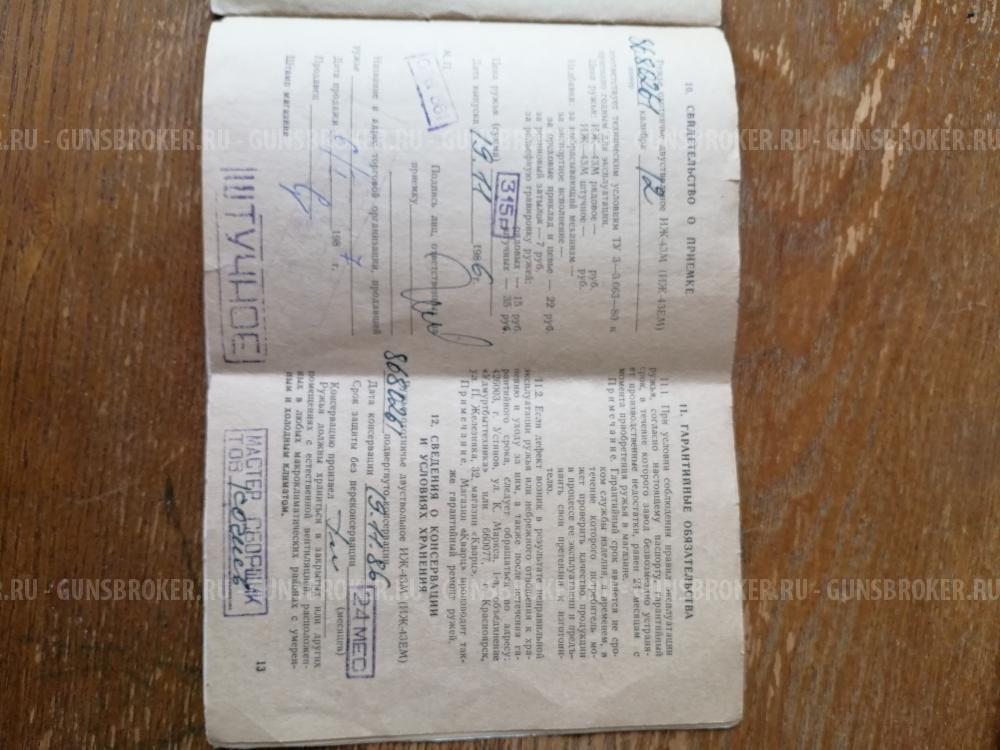 10. СВИДЕТЕЛЬСТВО О ПРИЕМКЕ
двуствольное ИЖ-43М (ИЖ-43ЕМ)
8686261 калибра 12
соответствует техническим условиям ТУ 3-3.663-80 и
годным для эксплуатации.
Цена ружья: ИЖ-43М рядовое — руб.
ИЖ-43М штучное — руб.
Надбавки: за выбрасывающий механизм —
за экспортное исполнение —
за ореховые приклад и цевье — 22 руб.
за резиновый затылок — 7 руб.
за рельефную гравировку ружей:
рядовых — 15 руб.
штучных — 35 руб.
Цена ружья (сумма) 315р
Дата выпуска 19.11 1986 г.
Подпись лиц, ответственных за
приемку
М. П.
Название и адрес торговой организации, продавшей
ружье
Дата продажи 6/1 1987 г.
Продавец
Штамп магазина
ШТУЧНОЕ
11. ГАРАНТИЙНЫЕ ОБЯЗАТЕЛЬСТВА
11.1. При условии соблюдения правил эксплуатации
ружья, согласно настоящему паспорту, гарантийный
срок, в течение которого завод безвозмездно устраня-
ет производственные недостатки, равен 24 месяцам с
момента приобретения ружья в магазине.
Примечание. Гарантийный срок является не сро-
ком службы изделия, а временем, в
течение которого потребитель мо-
жет проверить качество продукции
в процессе ее эксплуатации и предъ-
явить свои претензии к изготови-
телю.
11.2. Если дефект возник в результате неправильной
эксплуатации ружья или небрежного отношения к хра-
нению и уходу за ним, а также после истечения га-
рантийного срока, следует обращаться по адресу:
426003, г. Устинов, ул. К. Маркса, объединение
«Удмуртбыттехника» или 660071, г. Красноярск,
ул. П. Железняка, 32, магазин «Кварц».
Примечание. Магазин «Кварц» производит так-
же гарантийный ремонт ружей.
12. СВЕДЕНИЯ О КОНСЕРВАЦИИ
И УСЛОВИЯХ ХРАНЕНИЯ
8686261 двуствольное ИЖ-43М (ИЖ-43ЕМ)
подвергнуто консервации
Дата консервации 19.11.86
Срок защиты без переконсервации 24 МЕС
(месяцев)
Консервацию произвел
Ружья должны храниться в закрытых или других
помещениях с естественной вентиляцией, расположен-
ных в любых макроклиматических районах с умерен-
ным и холодным климатом.
МАСТЕР СБОРЩИК
ТОВ
13
GUNSBROKER.RU - GUNSBROKER.RU - GUNSBROKER.RU - GUNSBROKER.RU
GUNSBROKER.RU - GUNSBROKER.RU - GUNSBROKER.RU - GUNSBROKER.RU
GUNSBROKER.RU - GUNSBROKER.RU - GUNSBROKER.RU - GUNSBROKER.RU